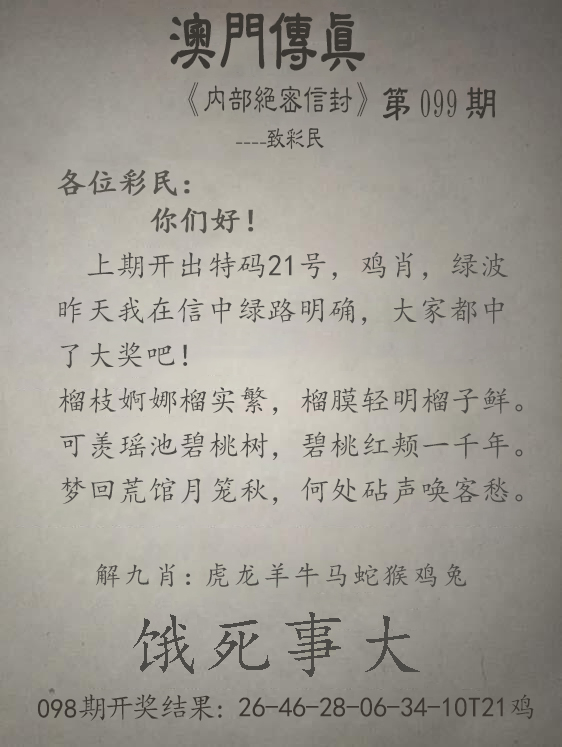 澳門傳真
《内部絕密信封》第099期
----致彩民
各位彩民：
你们好！
上期开出特码21号，鸡肖，绿波
昨天我在信中绿路明确，大家都中
了大奖吧！
榴枝婀娜榴实繁，榴膜轻明榴子鲜。
可羡瑶池碧桃树，碧桃红颊一千年。
梦回荒馆月笼秋，何处砧声唤客愁。
解九肖：虎龙羊牛马蛇猴鸡兔
饿死事大
098期开奖结果：26-46-28-06-34-10T21鸡